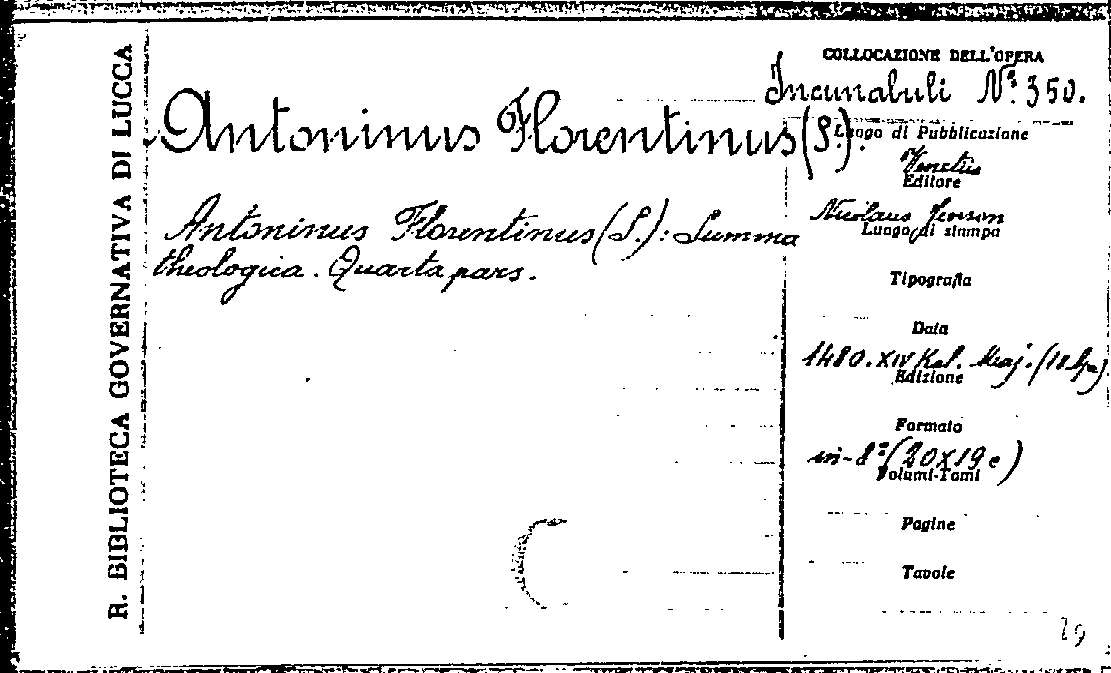 R. BIBLIOTECA GOVERNATIVA DI LUCCA
Antoninus Florentinus (S.).
Antoninus Florentinus (S.): Summa
theologica. Quarta pars.
COLLOCAZIONE DELL'OPERA
Incunabuli N.º 350.
Luogo di Pubblicazione
Venetiis
Editore
Nicolaus Jenson
Luogo di stampa
Tipografia
Data
1480. XIV Kal. Maj. (18
Edizione
Formato
in-8º (20x19 c)
Volumi-Tomi
Pagine
Tavole
29